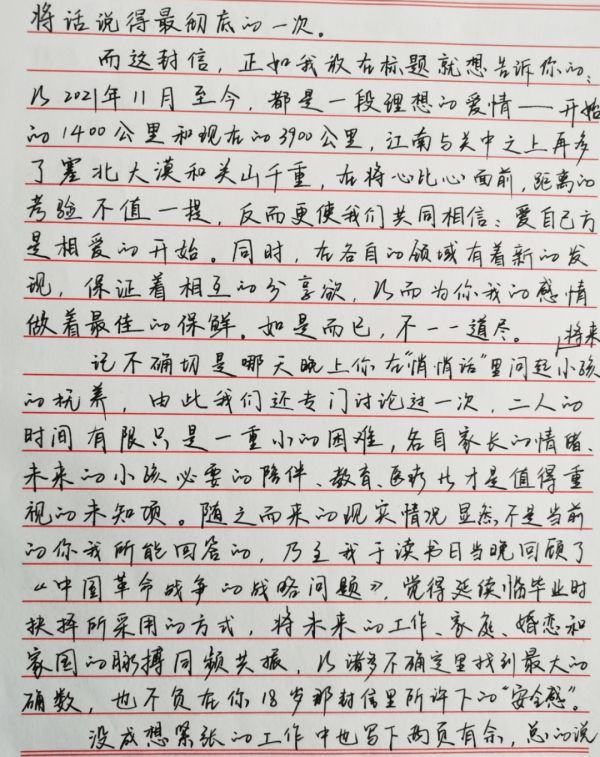 将话说得最彻底的一次。
而这封信，正如我放在标题就想告诉你的：
从2021年11月至今，都是一段理想的爱情——开始
的1400公里和现在的3900公里，江南与关中之上再多
了塞北大漠和关山千重，在将心比心面前，距离的
考验不值一提，反而更使我们共同相信：爱自己方
是相爱的开始。同时，在各自的领域有着新的发
现，保证着相互的分享欲，从而为你我的感情
做着最佳的保鲜。如是而已，不一一道尽。
记不确切是哪天晚上你在“悄悄话”里问起将来小孩
的抚养，由此我们还专门讨论过一次，二人的
时间有限只是一重小的困难，各自家长的情绪、
未来的小孩必要的陪伴、教育、医疗此才是值得重
视的未知项。随之而来的现实情况显然不是当前
的你我所能回答的，乃至我于读书日当晚回顾了
《中国革命战争的战略问题》，觉得延续临毕业时
抉择所采用的方式，将未来的工作、家庭、婚恋和
家国的脉搏同频共振，从诸多不确定里找到最大的
确数，也不负在你18岁那封信里所许下的“安全感”。
没成想紧张的工作中也写下两页有余，总的说